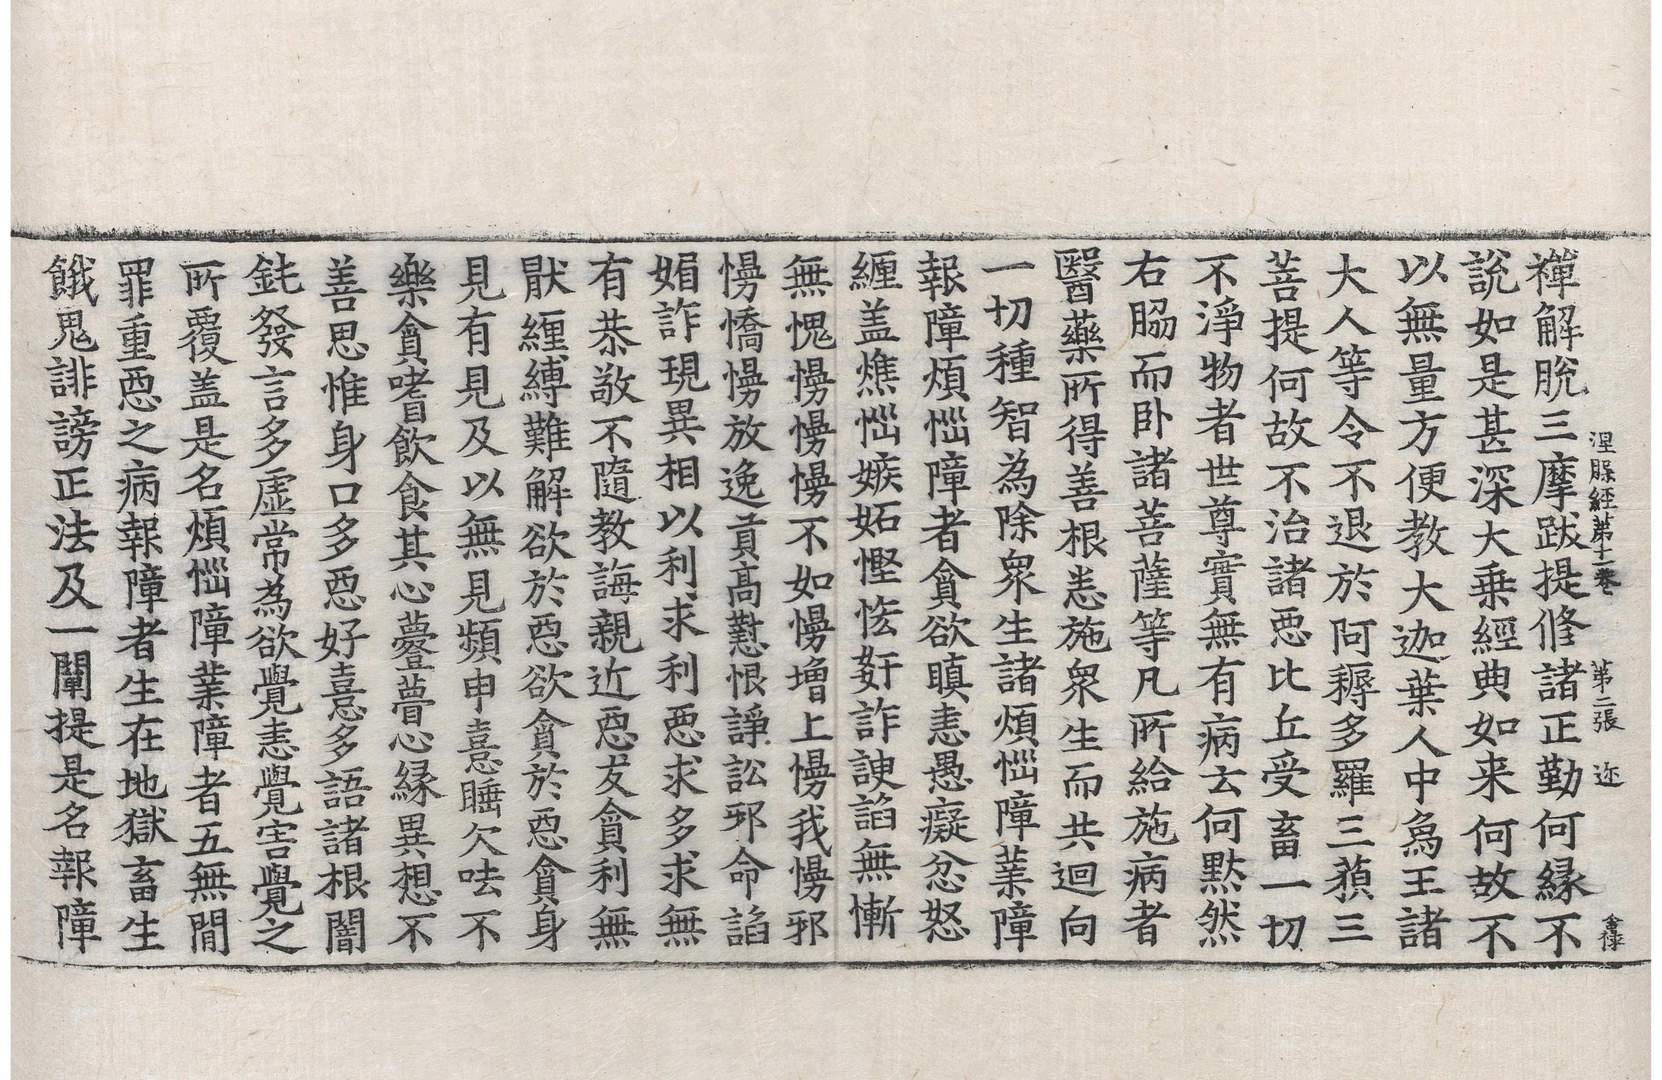 涅槃經第十一卷 第二張 迩
禪解脫三摩跋提修諸正勤何緣不
說如是甚深大乘經典如来何故不
以無量方便教大迦葉人中為王諸
大人等令不退於阿耨多羅三藐三
菩提何故不治諸惡比丘受畜一切
不淨物者世尊實無有病云何黙然
右脇而卧諸菩薩等凡所給施病者
醫藥所得善根悉施衆生而共迴向
一切種智為除衆生諸煩惱障業障
報障煩惱障者貪欲瞋恚愚癡忿怒
纏盖燋惱嫉妬慳悋奸詐諛諂無慚
無愧慢慢慢不如慢增上慢我慢邪
慢憍慢放逸貢高懟恨諍訟邪命諂
媚詐現異相以利求利惡求多求無
有恭敬不隨教誨親近惡友貪利無
猒纏縛難解欲於惡欲貪於惡貪身
見有見及以無見頻申憙睡欠呿不
樂貪嗜飲食其心薹瞢心緣異想不
善思惟身口多惡好憙多語諸根闇
鈍發言多虛常為欲覺恚覺害覺之
所覆盖是名煩惱障業障者五無間
罪重惡之病報障者生在地獄畜生
餓鬼誹謗正法及一闡提是名報障